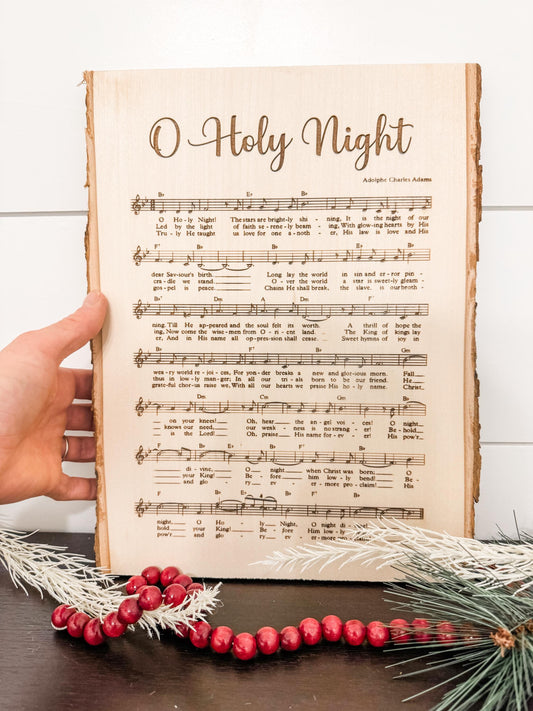 O Holy Night
Adolphe Charles Adams
B♭ E♭ B♭
O Ho-ly Night! The stars are bright-ly shi- ning, It is the night of our
Led by the light of faith se-rene-ly beam- ing, With glow-ing hearts by His
Tru-ly He taught us love for one a-noth- er, His law is love and His
F⁷ B♭
dear Sav-iour's birth. Long lay the world in sin and er-ror pin-
cra-dle we stand O-ver the world a star is sweet-ly gleam-
gos-pel is peace Chains He shall break, the slave, is our broth-
Dm A Dm F⁷
ning. Till He ap-peared and the soul felt its worth. A thrill of hope the
ing, Now come the wise-men from O-ri-ent land. The King of kings lay
er, And in His name all op-pres-sion shall cease. Sweet hymns of joy in
B♭ F⁷ B♭ Gm
wea-ry world re-joi-ces, For yon-der breaks a new and glo-rious morn. Fall
thus in low-ly man-ger; In all our tri-als born to be our friend. He
grate-ful cho-rus raise we, With all our hearts we praise His ho-ly name. Christ
Dm Cm Gm
on your knees! Oh, hear the an-gel voi-ces! O night
knows our need, our weak-ness is no strang-er! Be-hold
is the Lord! Oh, praise His name for-ev-er! His pow'r
B♭ F⁷ B♭ E♭ B♭
di-vine, O night when Christ was born; O
your King! Be-fore him low-ly bend! Be-
and glo-ry ev-er-more pro-claim! His
F⁷ B♭ E♭ B♭ F⁷ B♭
night, O Ho-ly Night, O night di-
hold your King! Be-fore Him low-ly
pow'r and glo-ry ev-er-more